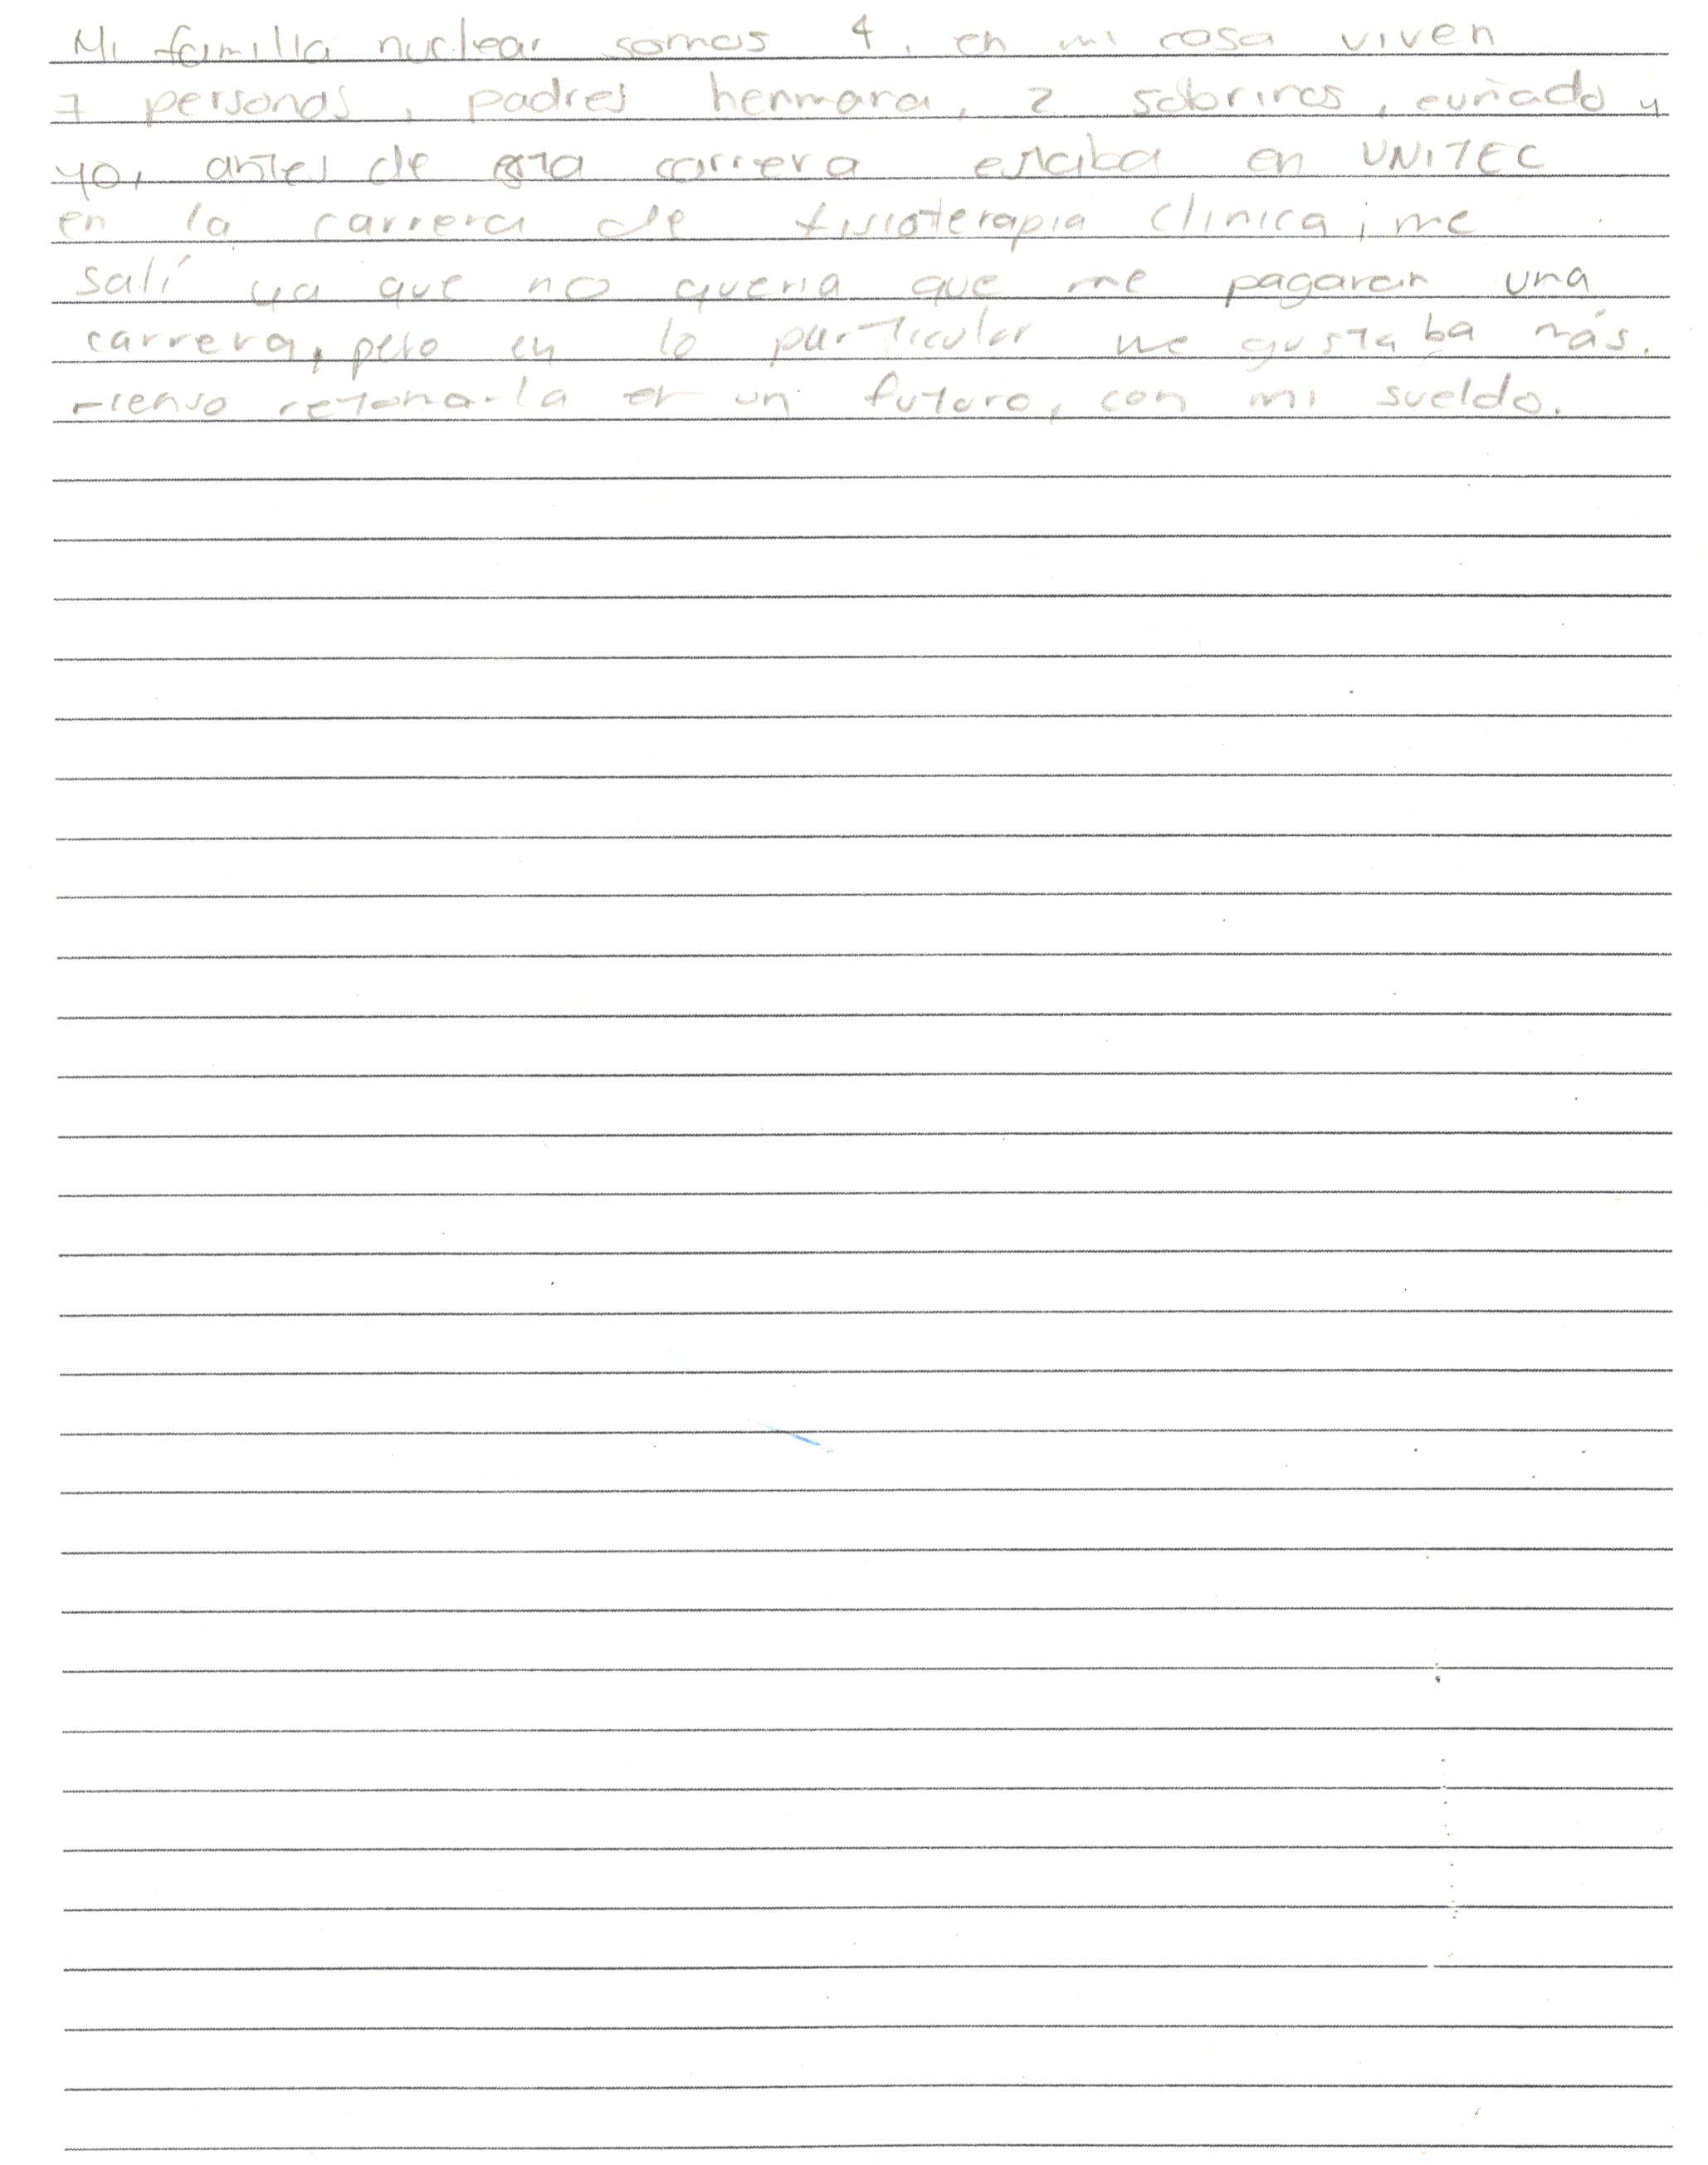 Mi familia nuclear somos 4, en mi casa viven
7 personas, padres hermana, 2 sobrinos, cuñado y
yo, antes de esta carrera estaba en UNITEC
en la carrera de fisioterapia clinica, me
salí ya que no queria que me pagaran una
carrera, pero en lo particular me gustaba más.
Pienso retomarla en un futuro, con mi sueldo.